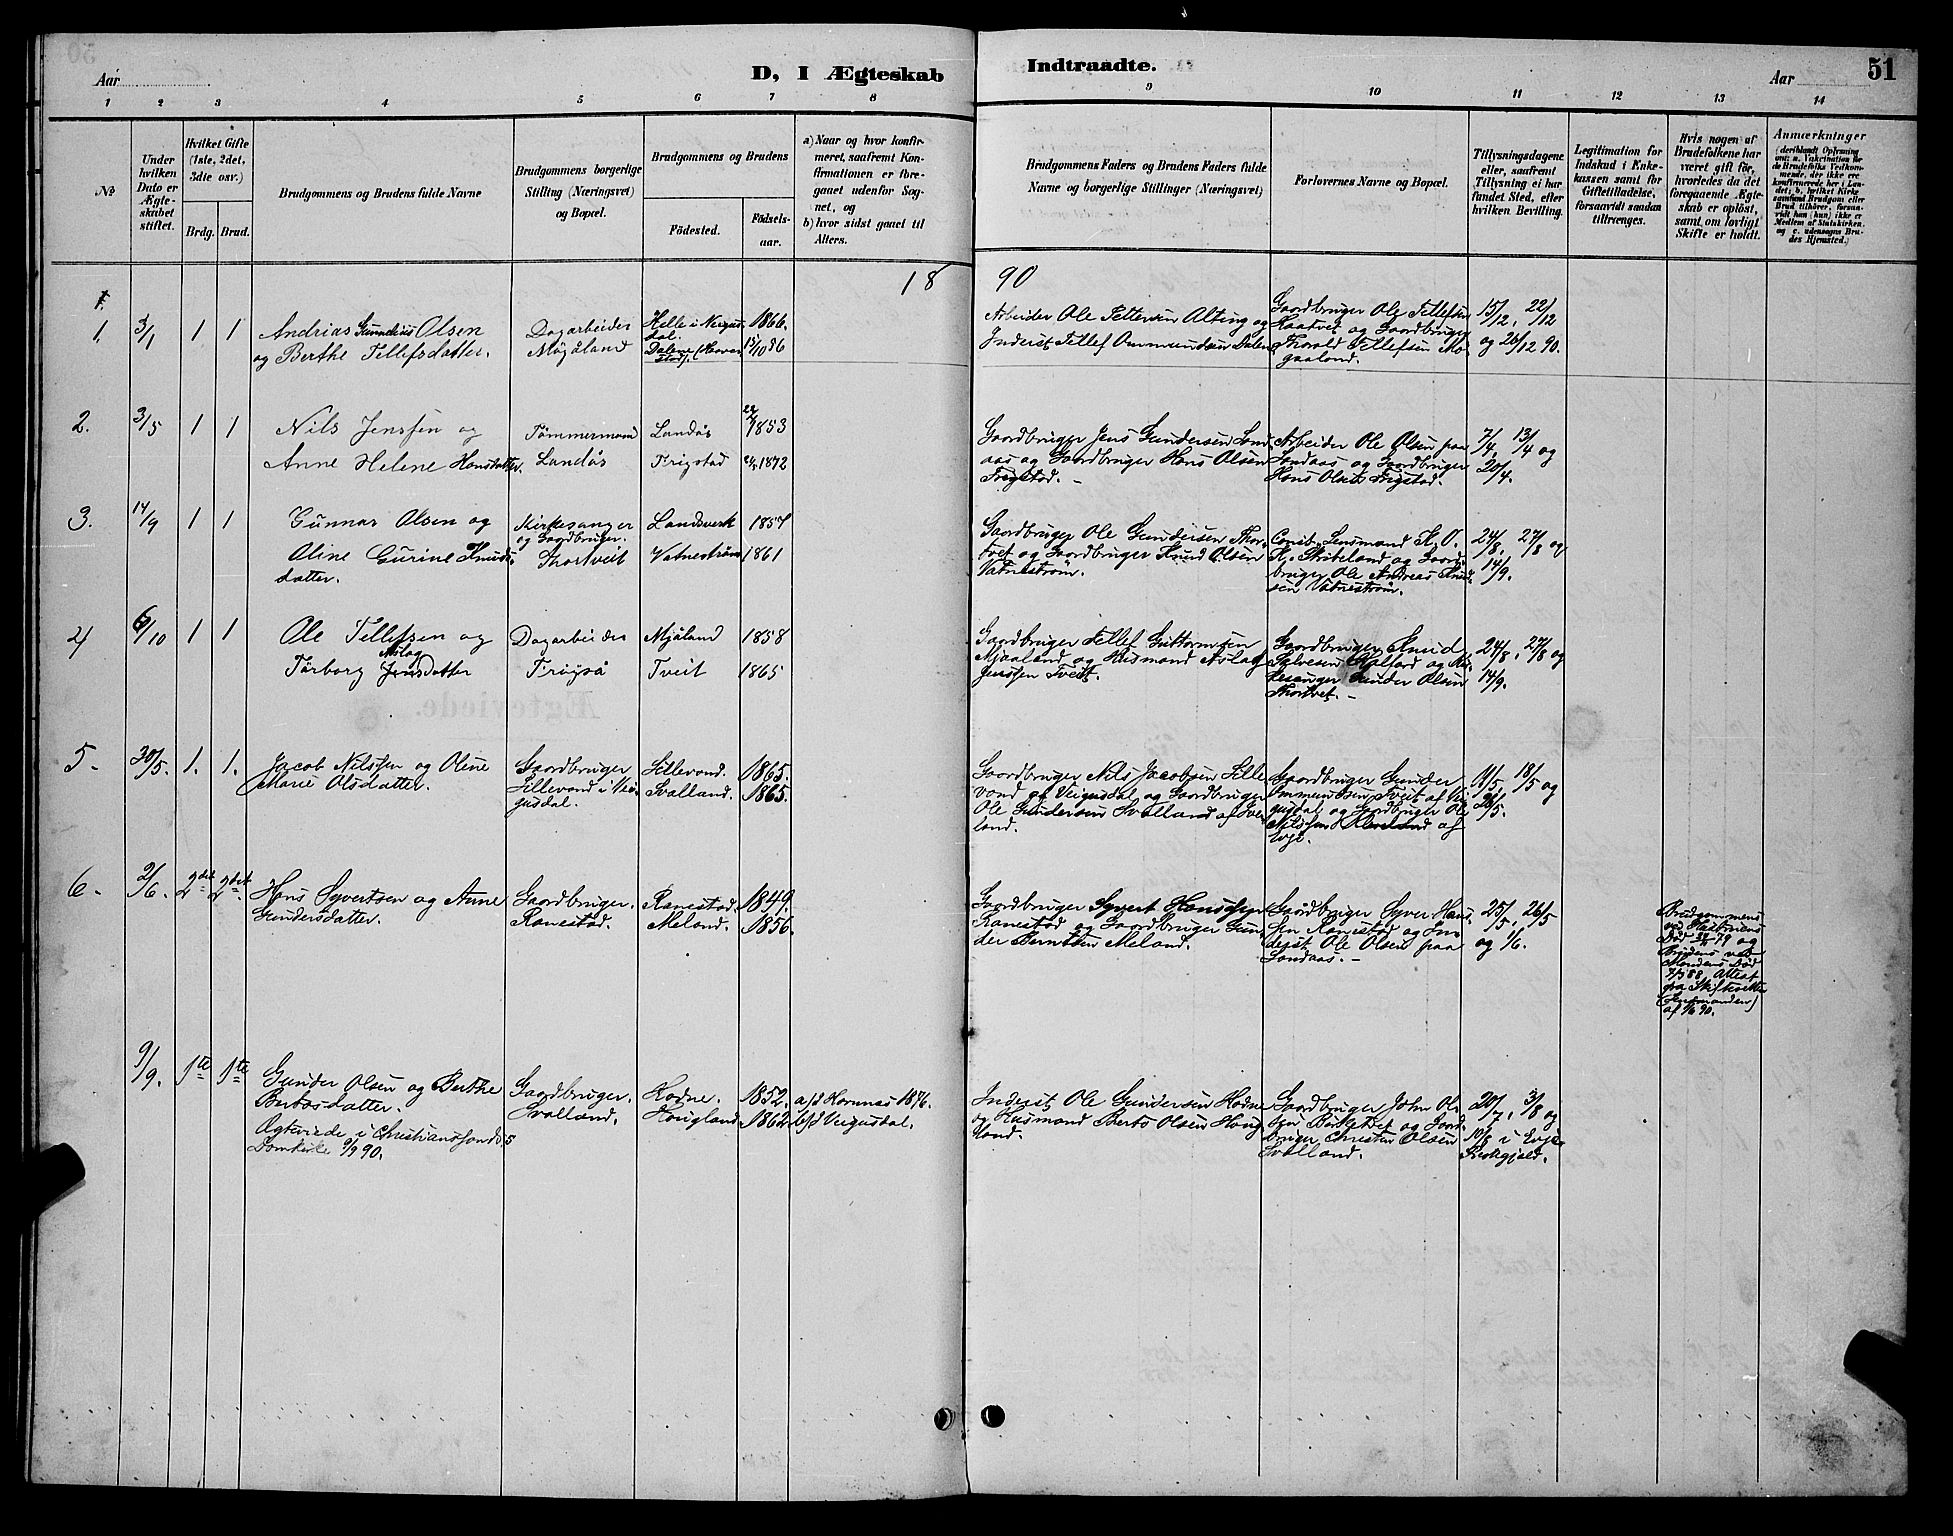 D, I Ægteskab Indtraadte.
51
Aar
Aar
1 2 3 4 5 6 7 8 9 10 11 12 13 14
№
Under hvilken Dato er Ægteskabet stiftet.
Hvilket Gifte (1ste, 2det, 3die osv.)
Brdg. Brud.
Brudgommens og Brudens fulde Navne
Brudgommens borgerlige Stilling (Næringsvei) og Bopæl.
Brudgommens og Brudens
Födested.
Födsels-aar.
a) Naar og hvor konfirmeret, saafremt Konfirmationen er foregaaet udenfor Sognet, og
b) hvor sidst gaaet til Alters.
Brudgommens Faders og Brudens Faders fulde Navne og borgerlige Stillinger (Næringsvei)
Forlovernes Navne og Bopæl.
Tillysningsdagene eller, saafremt Tillysning ei har fundet Sted, efter hvilken Bevilling.
Legitimation for Indskud i Enkekassen samt for Giftetilladelse, forsaavidt saadan tiltrænges.
Hvis nogen af Brudefolkene har været gift för, hvorledes da det foregaaende Ægteskab er oplöst, samt om lovligt Skifte er holdt.
Anmærkninger
(deriblandt Oplysning om: a. Vakcination for de Brudefolks Vedkommende, der ikke ere konfirmerede her i Landet; b. hvilket Kirkesamfund Brudgom eller Brud tilhörer, forsaavidt han (hun) ikke er Medlem af Statskirken, og c. udensogns Brudes Hjemsted.)
18 90
1. 3/1 1 1
Andrias Gunnelius Olsen
og Berthe Tellefsdatter.
Dagarbeider
Mögåland
Helle i Veigusdal.
1866.
15/10 86
Arbeider Ole Tellersen Alting og
Inderst Tellef Ommundsen Dalen
Gaardbruger Ole Tellefsen
Kaatvet og Gaardbruger
Thorald Tellefsen Mogaaland.
15/12, 22/12
og 26/12 90.
2. 3/5 1 1
Nils Jenssen og
Anne Helene Hansdatter.
Tömmermand
Landås
Landås
Frigstad
1853
1872
Gaardbruger Jens Gundersen Landaas og Gaardbruger Hans Olsen
Frigstad. -
Arbeider Ole Olsen paa
Landaas og Gaardbruger
Hans Olsen Frigstad.
7/4, 13/4 og
20/4.
3. 14/9 1 1
Gunnar Olsen og
Oline Gurine Knudsdatter.
Kirkesanger
og Gaardbruger.
Thortveit
Landsverk
Vatneström
1857
1861
Gaardbruger Ole Gundersen Thortvet og Gaardbruger Knud Olsen
Vatneström.
Const. Lensmand K. O.
K. Skribeland og Gaardbruger Ole Andreas Knudsen Vatneström.
24/8, 27/8 og
14/9.
4 6/10 1 1
Ole Tellefsen og
Torborg Aslag Jensdatter
Dagarbeider
Frigså
Mjåland
Tveit
1858
1865
Gaardbruger Tellef Guttormsen
Mjaaland og Husmand Aslag
Jenssen Tveit.
Gaardbruger Knud
Salvesen og Kirkesanger Gunder Olsen
Thortvet. -
24/8, 27/8 og
14/9.
5 - 30/5. 1. 1.
Jacob Nilssen og Olene
Marie Olsdatter.
Gaardbruger
Lillevand i Veigusdal.
Lillevand.
Svalland.
1865.
1865.
Gaardbruger Nils Jacobsen Lillevand og Veigusdal og Gaardbruger
Ole Gundersen Svalland af Iveland.
Gaardbruger Gunder
Ommundsen Tveit af Veigusdal og Gaardbruger Ole
Nilssen Kleveland af
Evje.
11/5, 18/5 og
26/5.
6 - 2/6. 2det 2det
Hans Syvertsen og Anne
Gundersdatter.
Gaardbruger.
Ranestad.
Ranestad.
Meland.
1849.
1856.
Gaardbruger Syvert Hanssen
Ranestad og Gaardbruger Gunder Berntsen Meland.
Gaardbruger Syver Hanssen Ranestad og Inderst Ole Olsen paa
Landaas. -
25/5, 26/5
og 1/6.
Brudgommens
ved Hustruens
Död 79 og
Brudens ved
Mandens Död
7/3 88. Attest
fra Skifteretten
(Lensmanden)
af 90.
9/9. 1ste 1ste
Gunder Olsen og Berthe
Bertosdatter.
Ægteviede i Christianssands
Domkirke 9/9 90.
Gaardbruger.
Svalland.
Hodne.
Hougland
1852.
1862
a/d Hornnes 1876.
b/d Veigusdal.
Inderst Ole Gundersen Hodne
og Husmand Berto Olsen Hougland.
Gaardbruger John Olsen og Gaardbruger Christen Olsen
Svalland.
20/7, 3/8 og
10/8 i Evje
Præstgjeld.